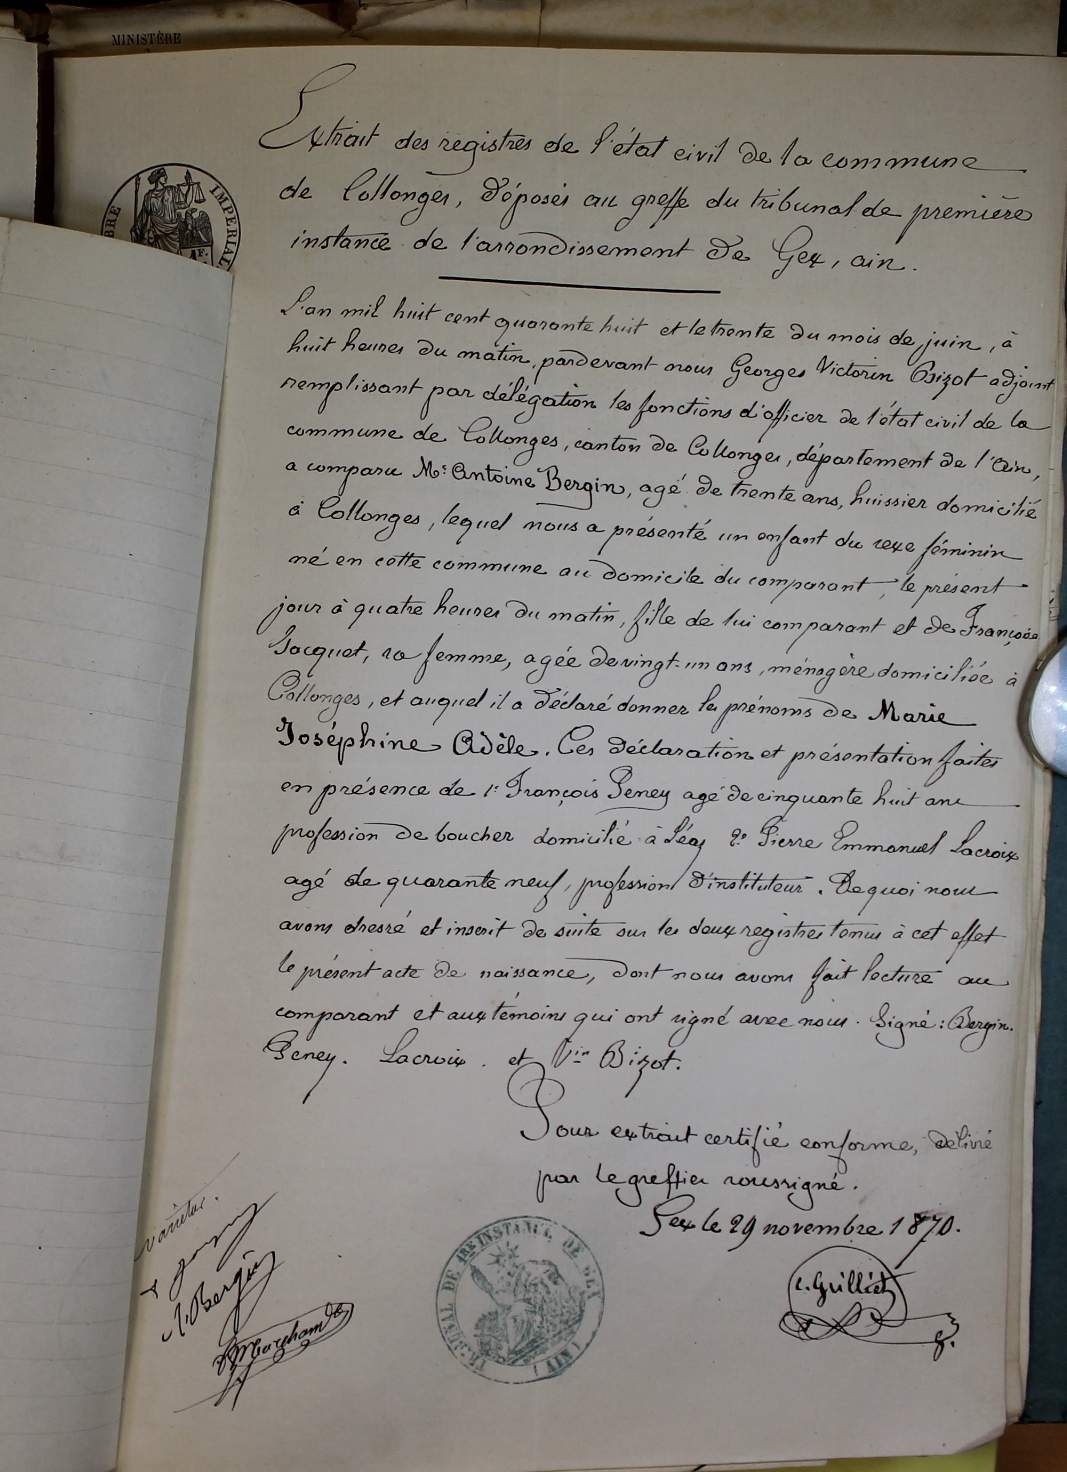 MINISTÈRE
Extrait des registres de l'état civil de la commune
de Collonges, déposés au greffe du tribunal de première
instance de l'arrondissement de Gex, ain.
BRE IMPERIAL
L'an mil huit cent quarante huit et le trente du mois de juin, à
huit heures du matin, pardevant nous Georges Victorin Bizot adjoint
remplissant par délégation les fonctions d'officier de l'état civil de la
commune de Collonges, canton de Collonges, département de l'ain,
a comparu Mr. Antoine Bergin, agé de trente ans, huissier domicilié
à Collonges, lequel nous a présenté un enfant du sexe féminin
né en cette commune au domicile du comparant, le présent
jour à quatre heures du matin, fille de lui comparant et de Françoise
Jacquet, sa femme, agée de vingt-un ans, ménagère domiciliée à
Collonges, et auquel il a déclaré donner les prénoms de Marie
Joséphine Adèle. Ces déclaration et présentation faites
en présence de 1° François Peney agé de cinquante huit ans
profession de boucher domicilié à Léaz 2° Pierre Emmanuel Lacroix
agé de quarante neuf, profession d'instituteur. De quoi nous
avons dressé et inscrit de suite sur les deux registres tenus à cet effet
le présent acte de naissance, dont nous avons fait lecture au
comparant et aux témoins qui ont signé avec nous. Signé: Bergin.
Peney. Lacroix. et Vin Bizot.
Pour extrait certifié conforme, délivré
par le greffier soussigné.
Gex le 29 novembre 1870.
varietur.
A. Bergin
Marchand
TRIBUNAL DE 1RE INSTANCE DE GEX (AIN)
C. Grilliet